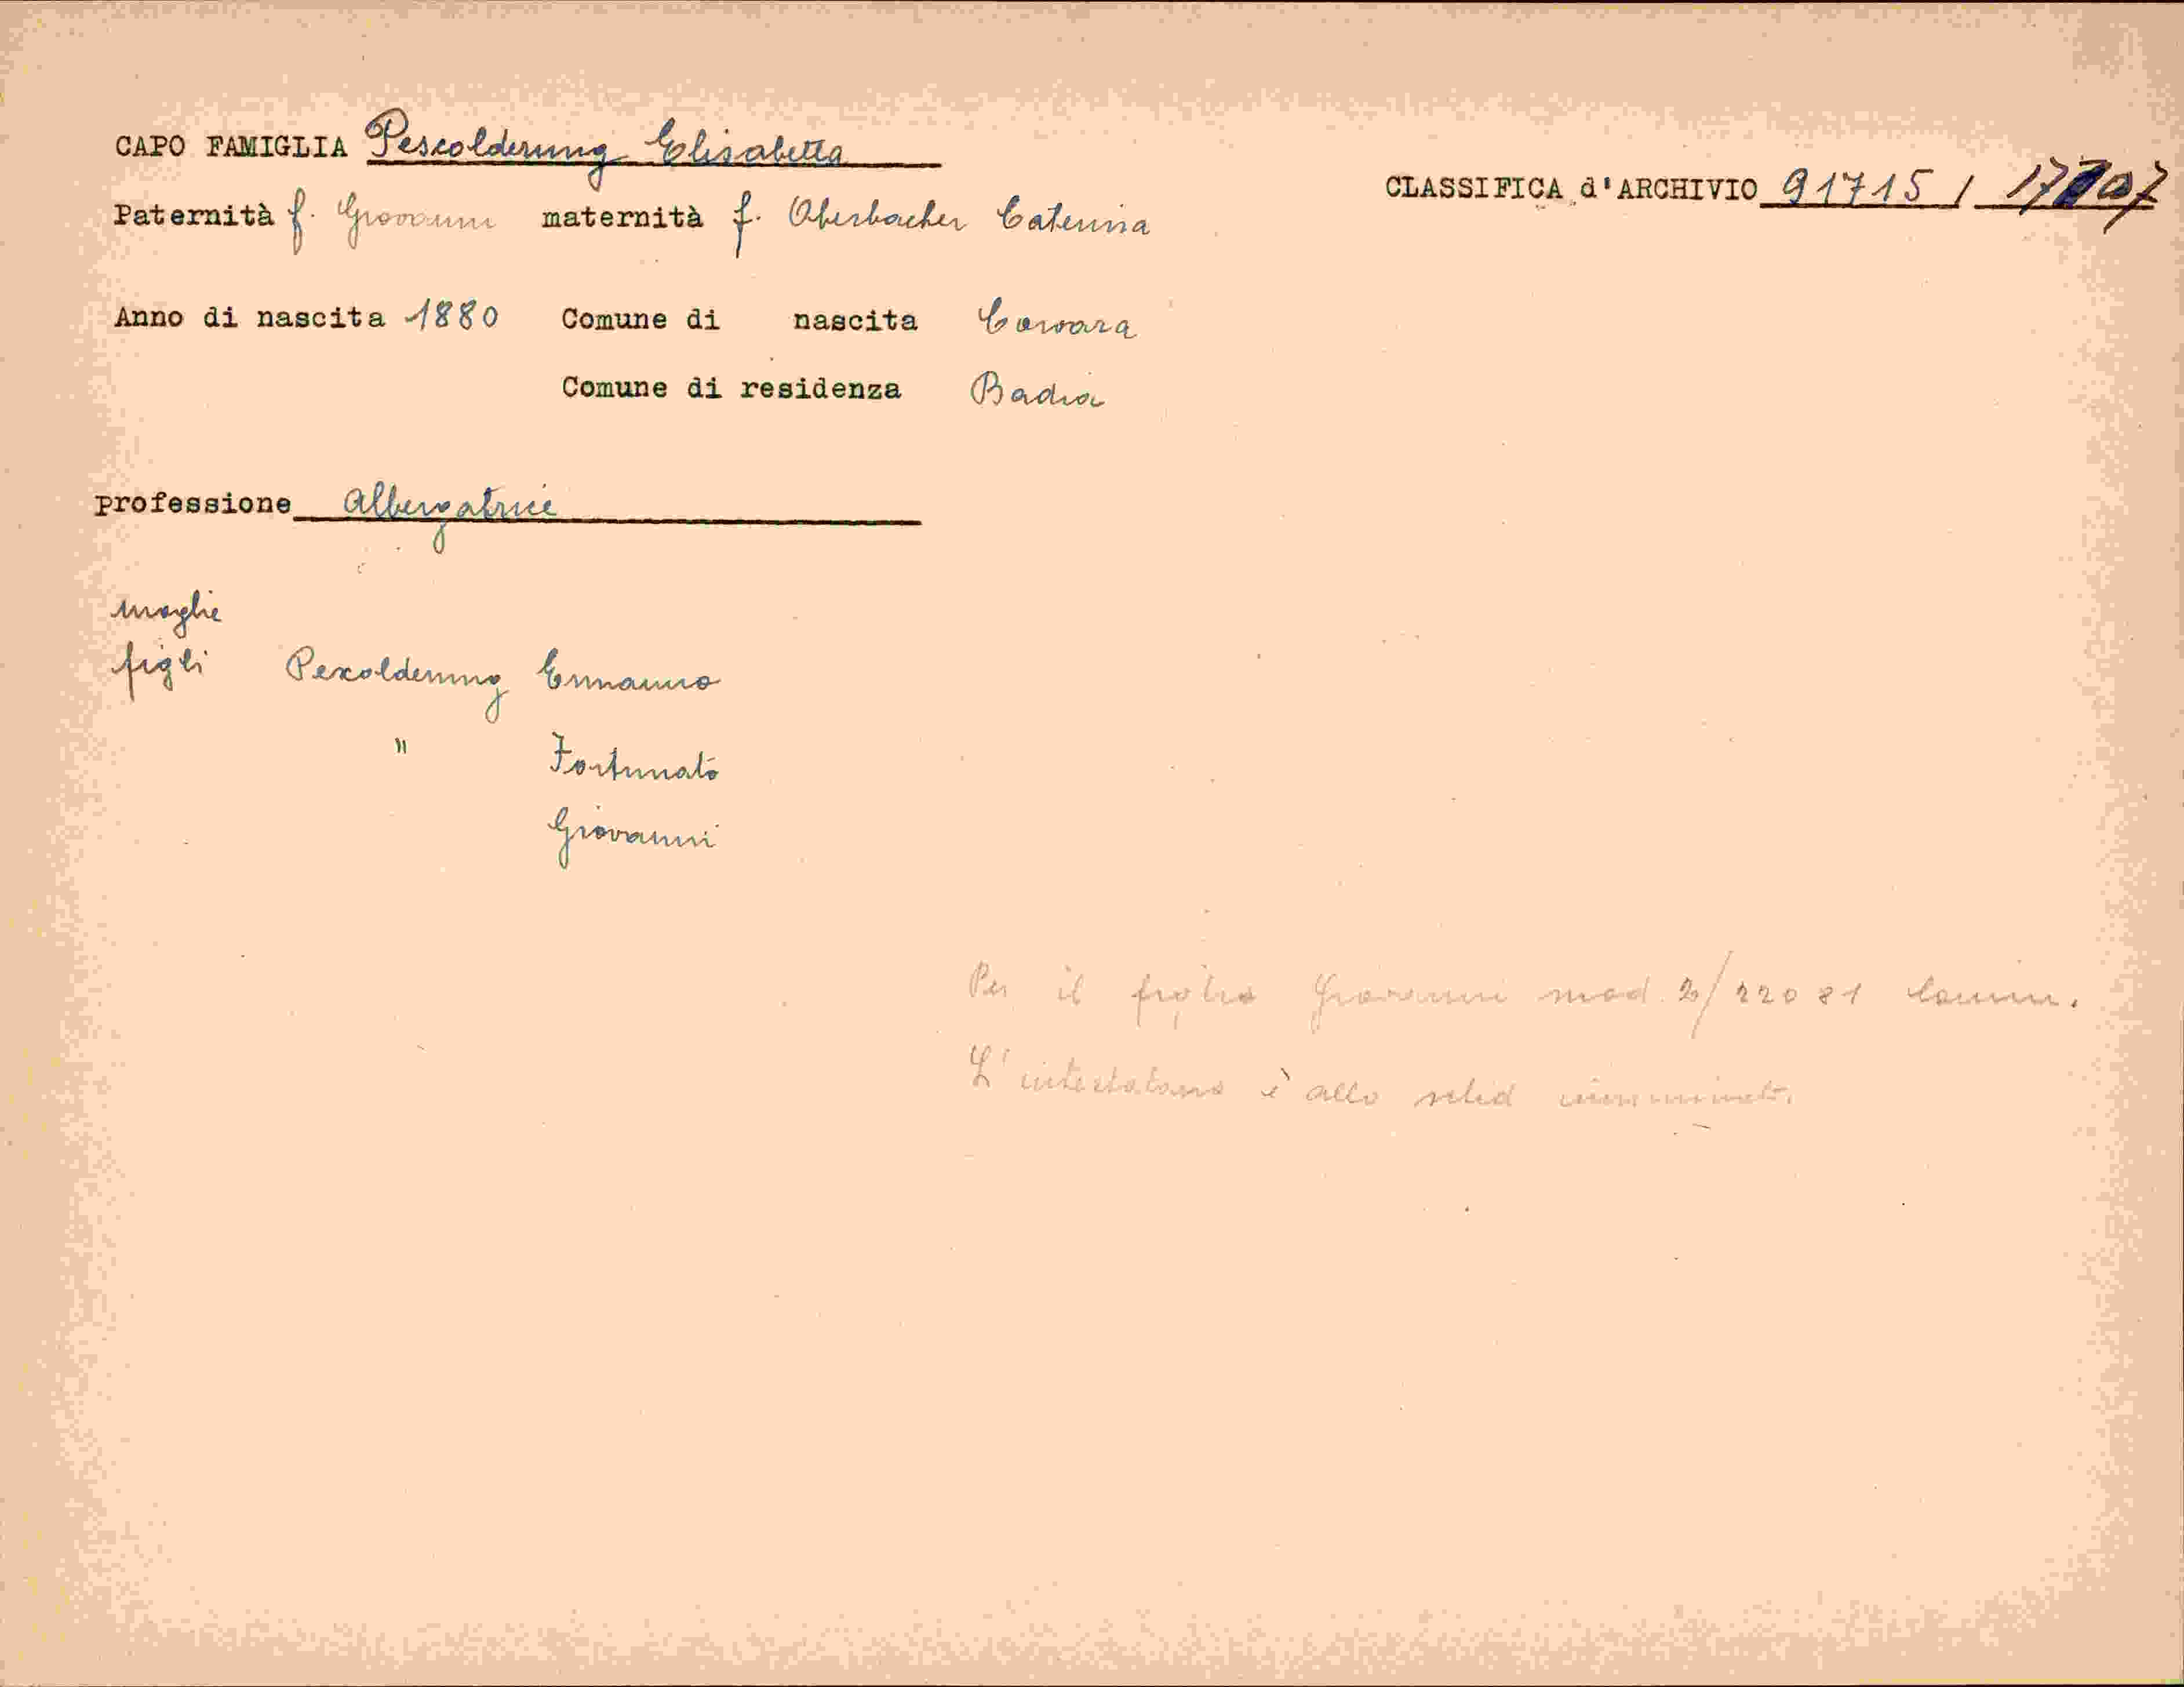 CAPO FAMIGLIA Pescolderung Elisabetta
CLASSIFICA d'ARCHIVIO 91715 /
Paternità f. Giovanni maternità f. Oberbacher Caterina
Anno di nascita 1880 Comune di nascita Corvara
Comune di residenza Badia
professione Albergatrice
moglie
figli Pescolderung Ermanno
" Fortunato
Giovanni
Per il figlio Giovanni mod. 2/22081
L'intestatario è allo